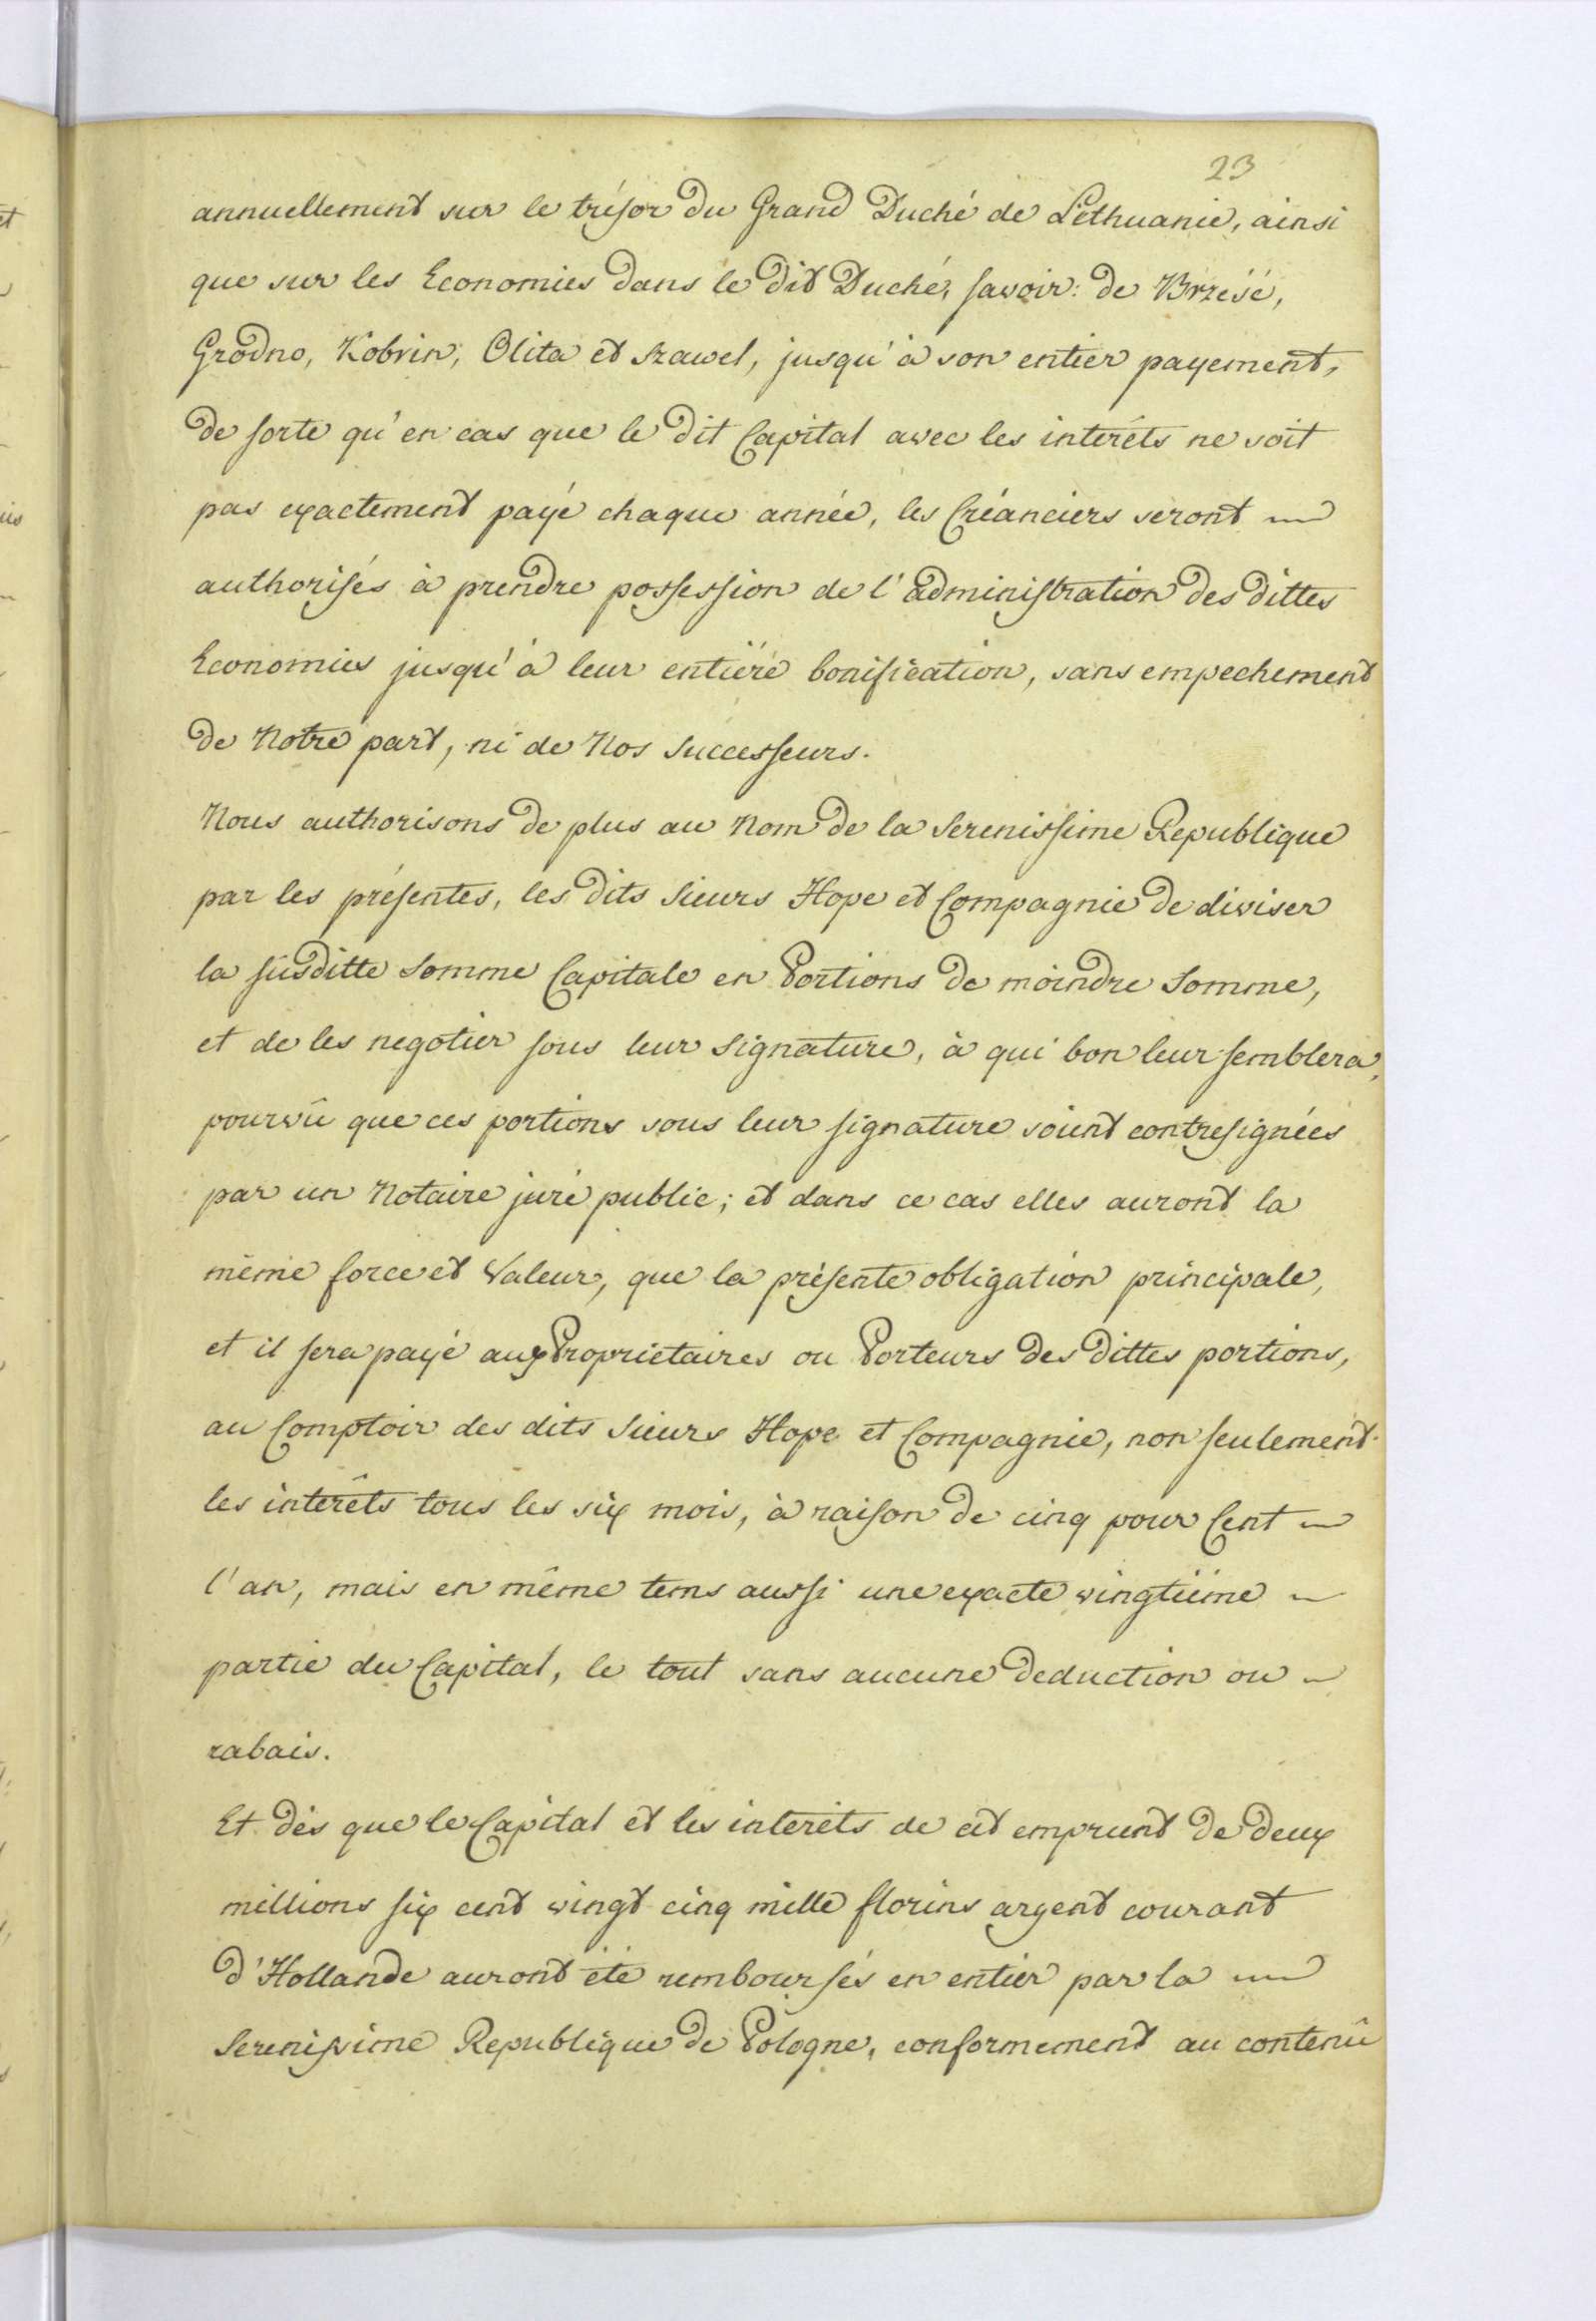 23
annuellement sur le trésor du Grand Duché de Lithuanie, ainsi
que sur les Economies dans le dit Duché, savoir: de Brześć,
Grodno, Kobrin, Olita et Szawel, jusqu'à son entier payement,
de sorte qu'en cas que le dit Capital avec les interêts ne soit
pas exactement payé chaque année, les Créanciers seront
authorisés à prendre possession de l'administration des dittes
Economies jusqu'à leur entière bonification, sans empechement
de Notre part, ni de Nos Successeurs.
Nous authorisons de plus au Nom de la Serenissime Republique
par les présentes, les dits Sieurs Hope et Compagnie de diviser
la susditte Somme Capitale en Portions de moindre Somme,
et de les negotier sous leur Signature, à qui bon leur semblera,
pourvû que ces portions sous leur signature soient contresignées
par un Notaire juré public; et dans ce cas elles auront la
même force et Valeur, que la présente obligation principale,
et il sera payé aux Proprietaires ou Porteurs des dittes portions,
au Comptoir des dits Sieurs Hope et Compagnie, non seulement
les interêts tous les six mois, à raison de cinq pour Cent
l'an, mais en même tems aussi une exacte vingtiéme
partie du Capital, le tout sans aucune deduction ou
rabais.
Et dès que le Capital et les interêts de cet emprunt de deux
millions six cent vingt cinq mille florins argent courant
d'Hollande auront été remboursés en entier par la
Serenissime Republique de Pologne, conformement au contenû